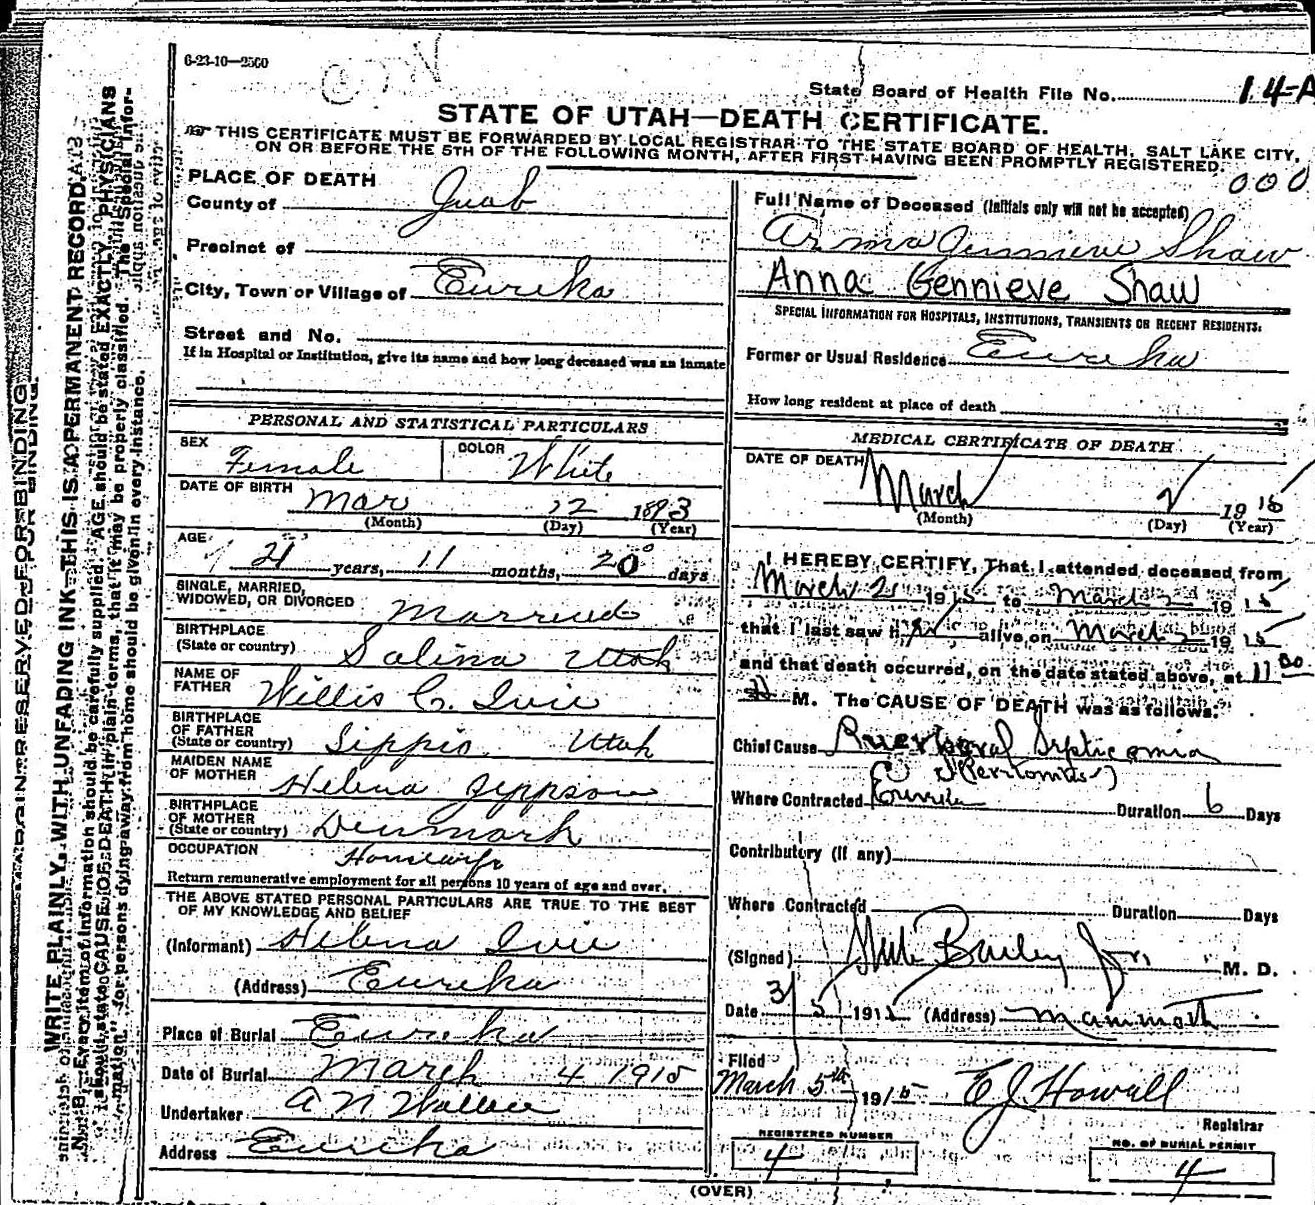 6-23-10—2500
State Board of Health File No. 14-A
STATE OF UTAH—DEATH CERTIFICATE.
THIS CERTIFICATE MUST BE FORWARDED BY LOCAL REGISTRAR TO THE STATE BOARD OF HEALTH, SALT LAKE CITY,
ON OR BEFORE THE 5TH OF THE FOLLOWING MONTH, AFTER FIRST HAVING BEEN PROMPTLY REGISTERED.
000
PLACE OF DEATH
County of Juab
Precinct of
City, Town or Village of Eureka
Street and No.
If in Hospital or Institution, give its name and how long deceased was an inmate
PERSONAL AND STATISTICAL PARTICULARS
SEX Female COLOR White
DATE OF BIRTH Mar 12 1893
(Month) (Day) (Year)
AGE 21 years, 11 months, 20 days
SINGLE, MARRIED,
WIDOWED, OR DIVORCED Married
BIRTHPLACE
(State or country) Salina Utah
NAME OF
FATHER Willis C. Ivie
BIRTHPLACE
OF FATHER
(State or country) Sippio Utah
MAIDEN NAME
OF MOTHER Helena Jeppson
BIRTHPLACE
OF MOTHER
(State or country) Denmark
OCCUPATION Housewife
Return remunerative employment for all persons 10 years of age and over.
THE ABOVE STATED PERSONAL PARTICULARS ARE TRUE TO THE BEST
OF MY KNOWLEDGE AND BELIEF
(Informant) Helena Ivie
(Address) Eureka
Place of Burial Eureka
Date of Burial March 4 1915
Undertaker A N Wallace
Address Eureka
Full Name of Deceased (Initials only will not be accepted)
Anna Gennieve Shaw
Anna Gennieve Shaw
SPECIAL INFORMATION FOR HOSPITALS, INSTITUTIONS, TRANSIENTS OR RECENT RESIDENTS.
Former or Usual Residence Eureka
How long resident at place of death
MEDICAL CERTIFICATE OF DEATH
DATE OF DEATH March 2 1915
(Month) (Day) (Year)
I HEREBY CERTIFY, That I attended deceased from
March 2 1915 to March 2 1915
that I last saw her alive on March 2 1915
and that death occurred, on the date stated above, at 11 30
M. The CAUSE OF DEATH was as follows:
Chief Cause Puerperal Septicemia
(Peritonitis)
Where Contracted Eureka Duration 6 Days
Contributory (if any)
Where Contracted Duration Days
(Signed) Bailey Jr. M. D.
Date 3/5 1915 (Address) Mammoth
Filed
March 5th 1915 E J Howell
Registrar
REGISTERED NUMBER
4
NO. OF BURIAL PERMIT
4
(OVER)
MARGIN RESERVED FOR BINDING.
WRITE PLAINLY, WITH UNFADING INK—THIS IS A PERMANENT RECORD
N. B.—Every item of information should be carefully supplied. AGE should be stated EXACTLY. PHYSICIANS
should state CAUSE OF DEATH in plain terms, that it may be properly classified. The "Special Infor-
mation" for persons dying away from home should be given in every instance.